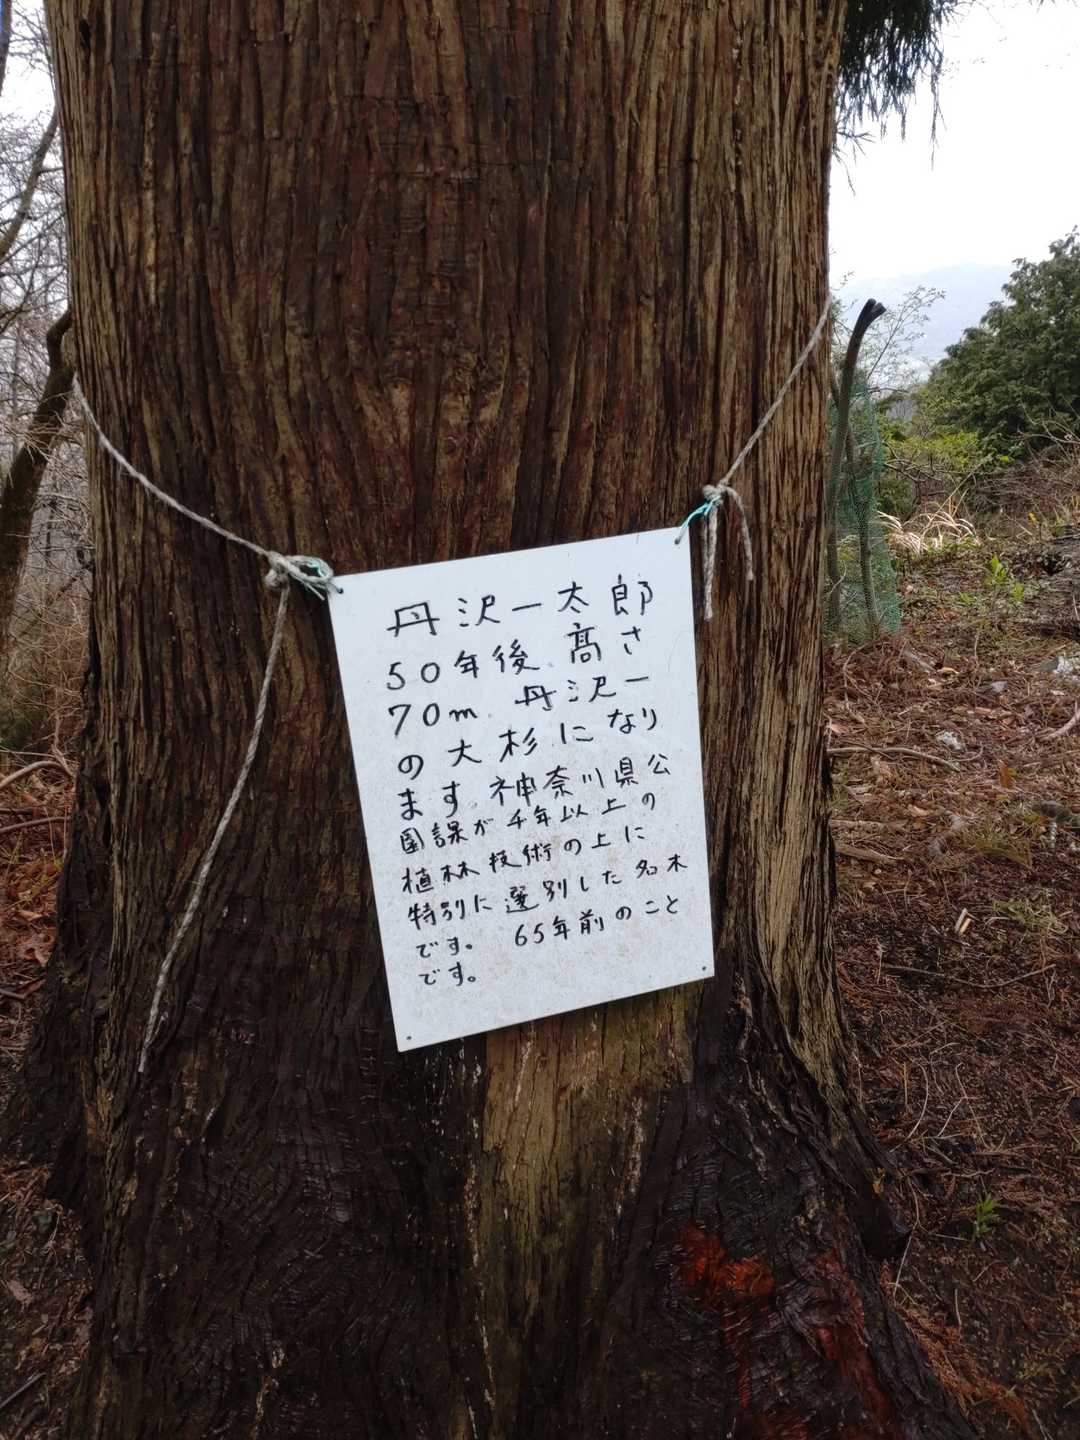 丹沢一太郎
50年後、髙さ
70m、丹沢一
の大杉になり
ます。神奈川県公
園課が千年以上の
植林技術の上に
特別に選別した名木
です。 65年前のこと
です。